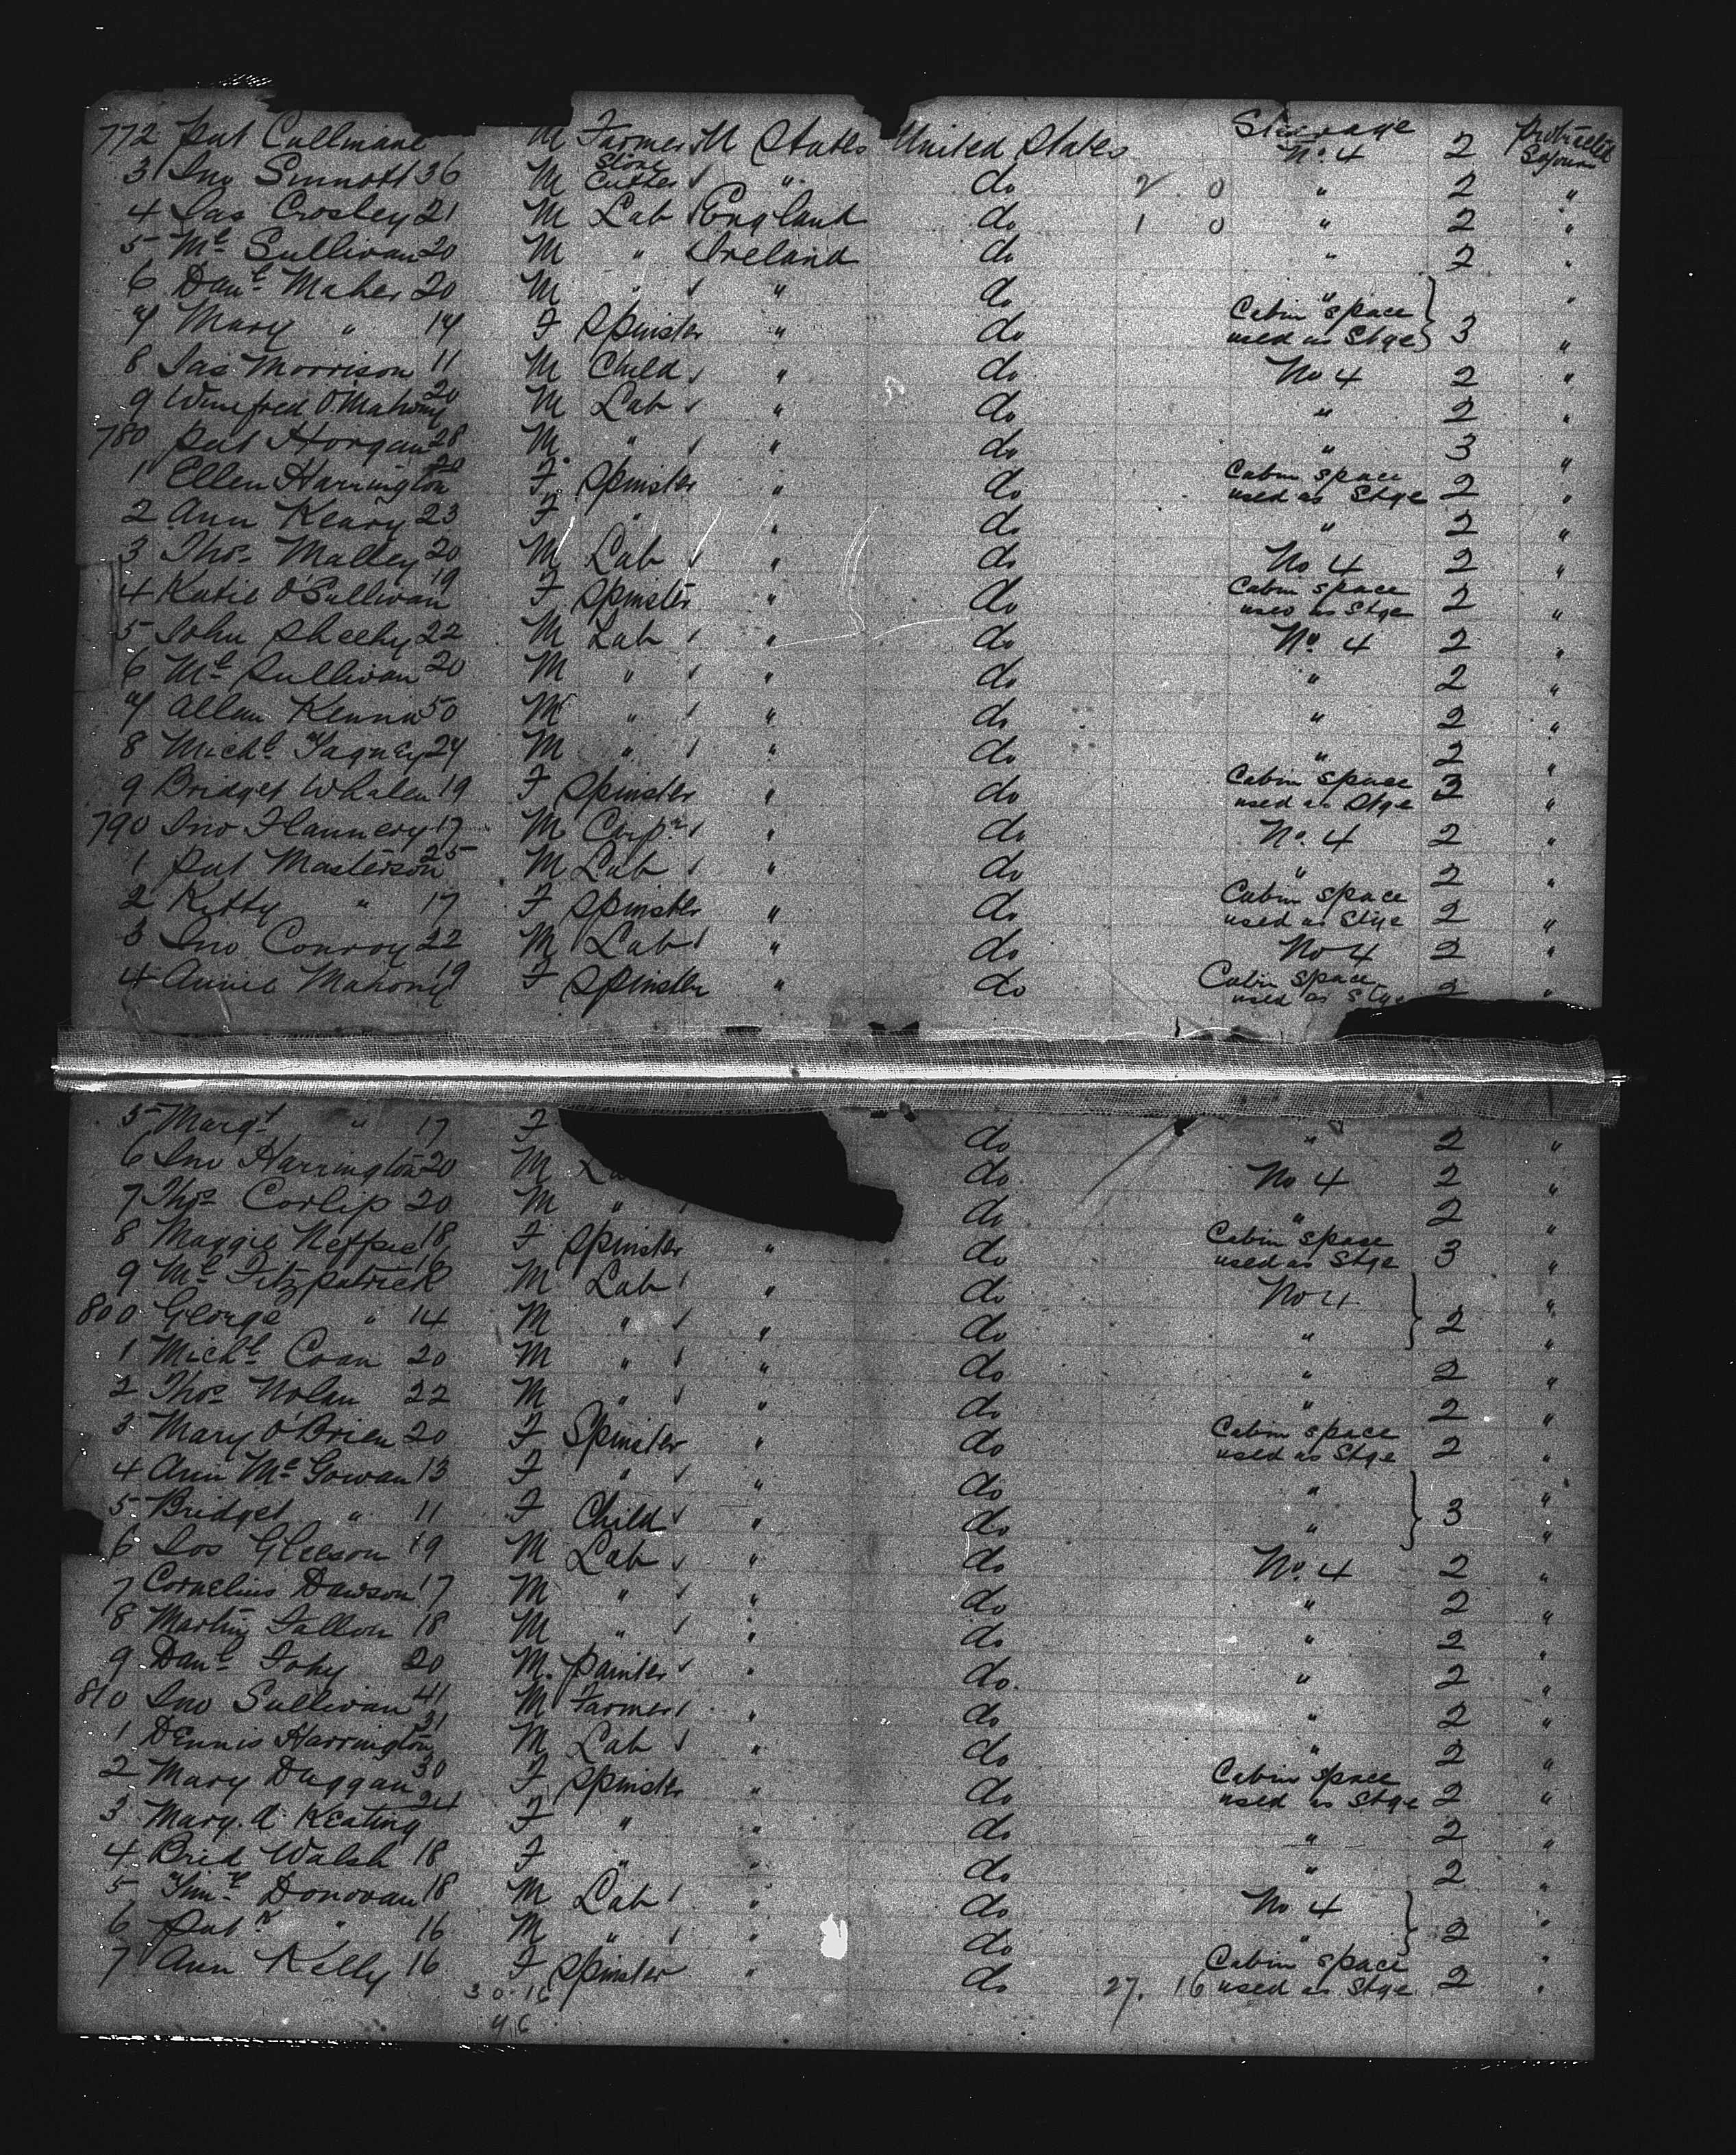 772 Pat Cullinane M Farmer U States United States Steerage No. 4 2 Protracted Sojourn
3 Jno Sinnott 36 M Stone Cutter " do 2 0 " 2 "
4 Jas Crosley 21 M Lab England do 1 0 " 2 "
5 Ml Sullivan 20 M " Ireland do " 2 "
6 Danl Maher 20 M " " do " "
7 Mary " 14 F Spinster " do Cabin space used as Stge 3 "
8 Jas Morrison 11 M Child " do No 4 2 "
9 Winefred O'Mahony 20 M Lab " do " 2 "
780 Pat Horgan 28 M " " do " 3 "
1 Ellen Harrington F Spinster " do Cabin space used as Stge 2 "
2 Ann Keary 23 F " " do " 2 "
3 Thos Malley 20 M Lab " do No 4 2 "
4 Katie O'Sullivan 19 F Spinster " do Cabin space used as Stge 2 "
5 John Sheehy 22 M Lab " do No. 4 2 "
6 Ml Sullivan 20 M " " do " 2 "
7 Allan Kenna 50 M " " do " 2 "
8 Michl Fagney 24 M " " do " 2 "
9 Bridget Whalen 19 F Spinster " do Cabin space used as Stge "
790 Jno Flannery 17 M Carpr " do No. 4 2 "
1 Pat Masterson 25 M Lab " do " 2 "
2 Kitty " 17 F Spinster " do Cabin space used as Stge 2 "
3 Jno Conroy 22 M Lab " do No 4 2 "
4 Annie Mahony 19 F Spinster " do Cabin space used as Stge 2 "
5 Margt " 17 F do " 2 "
6 Jno Harrington 20 M do No 4 2 "
7 Thos Corlip 20 M " do " 2 "
8 Maggie 18 F Spinster " do Cabin space used as Stge 3 "
9 Ml Fitzpatrick 16 M Lab " do No 4 "
800 George " 14 M " " do " 2 "
1 Michl Coan 20 M " " do " 2 "
2 Thos Nolan 22 M " " do " 2 "
3 Mary O'Brien 20 F Spinster " do Cabin space used as Stge 2 "
4 Ann McGowan 13 F " " do " "
5 Bridget " 11 F Child " do " 3 "
6 Jos Gleeson 19 M Lab " do No. 4 2 "
7 Cornelius Dawson 17 M " " do " 2 "
8 Martin Fallon 18 M " " do " 2 "
9 Danl Fohy 20 M. Painter " do. " 2 "
810 Jno Sullivan 41 M Farmer " do " 2 "
1 Dennis Harrington 31 M Lab " do " 2 "
2 Mary Duggan 30 F Spinster " do Cabin space used as Stge 2 "
3 Mary. A Keating 24 F " " do " 2 "
4 Brid Walsh 18 F " " do " 2 "
5 Timy Donovan 18 M Lab " do No 4 "
6 Patk " 16 M " " do " 2 "
7 Ann Kelly 16 F Spinster " do 27. 16 Cabin space used as Stge 2 "
30.16
46